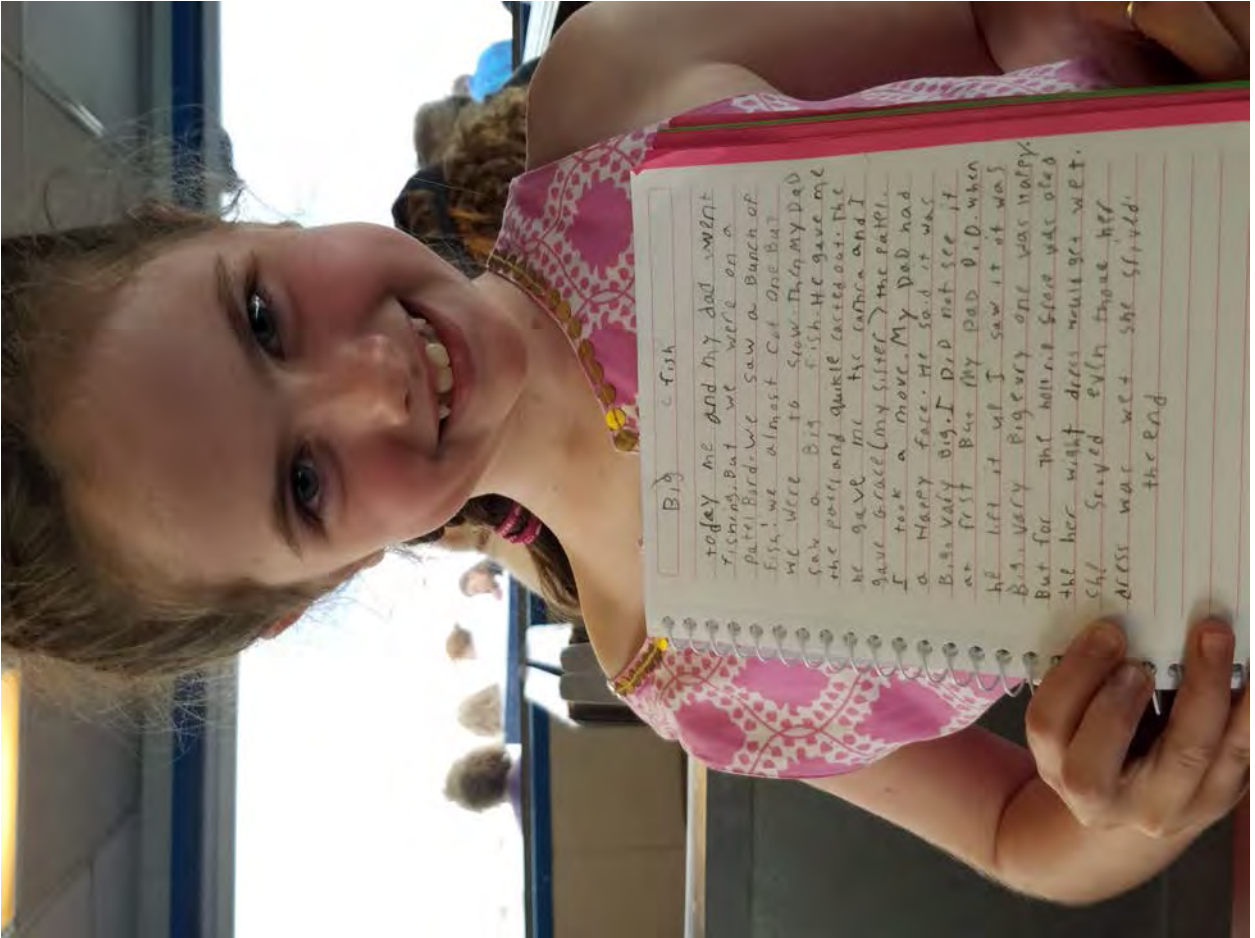 Big fish
today me and my dad went
fishing. But we were on a
patel Bord. We saw a Bunch of
fish. we almost cot one But
we were to slow. Then My DaD
saw a Big fish. He gave me
the patel and quikle cacted out. The
he gave me the camra and I
gave Grace (my sister) the patel.
I took a move. My DaD had
a Happy face. He sad it was
Big. vary Big. I DiD not see it
at frst But my DaD DiD. when
he lift it up I saw it it was
Big. vary Big. evry one was Happy.
But for The
the her wight dres would get wet.
She even those her
dress was wet she
the end